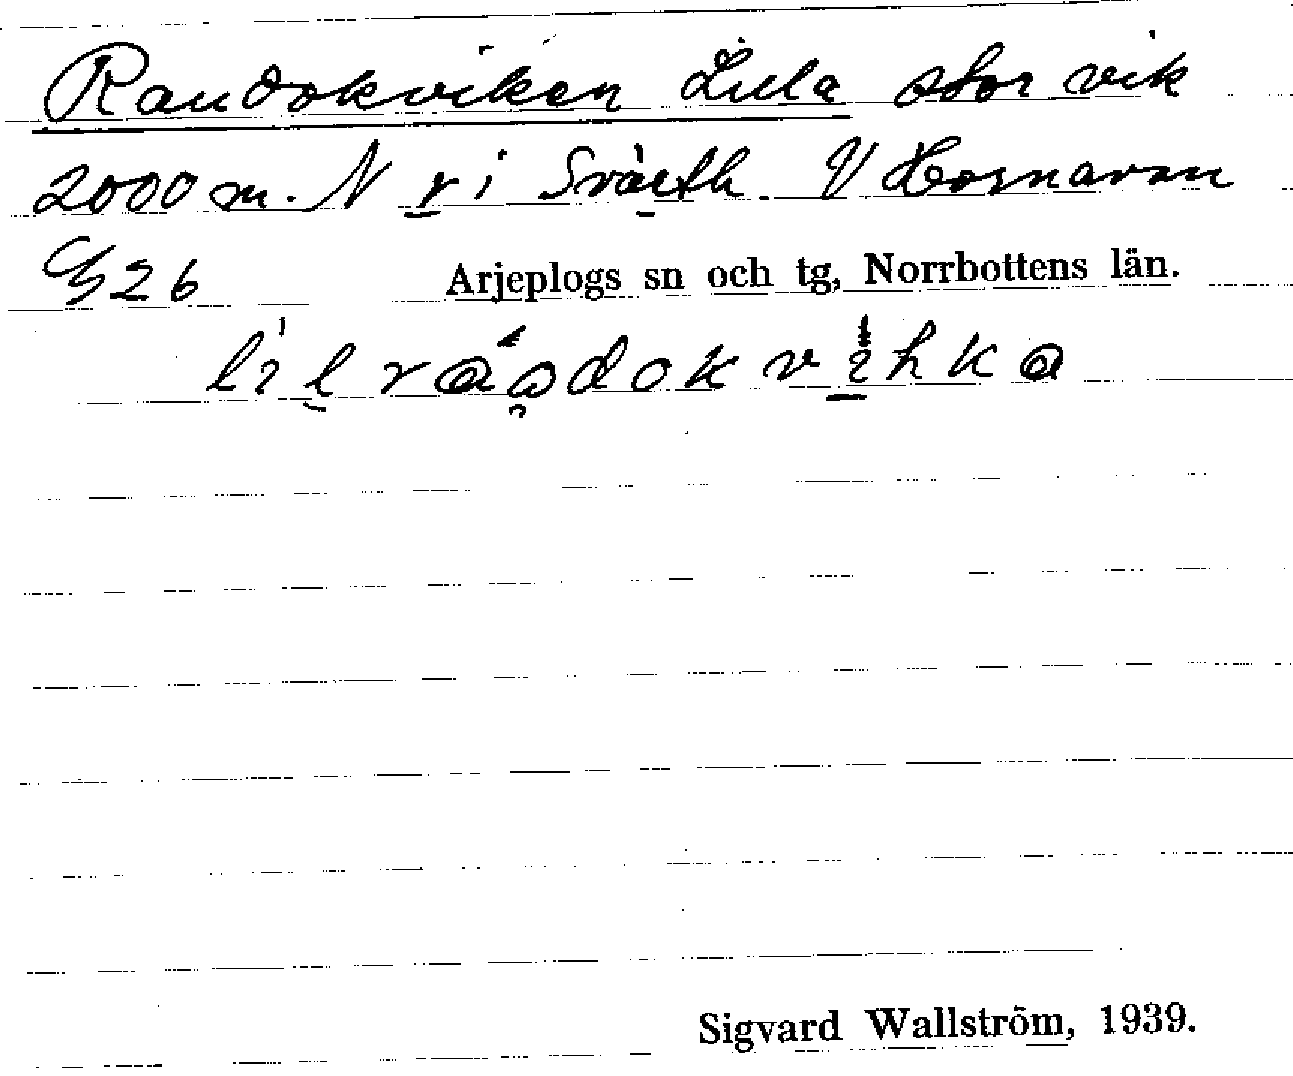 Raudokviken Lilla stor vik
2000 m. N r i Svärth V Hornavan
G26 Arjeplogs sn och tg, Norrbottens län.
Sigvard Wallström, 1939.